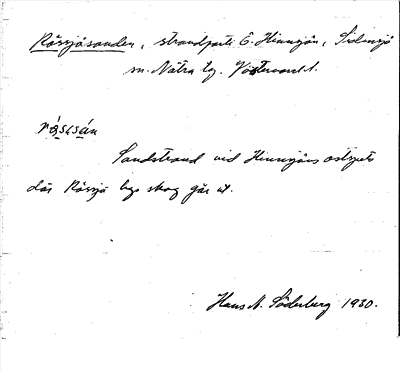 Rössjösanden, strandparti Ö. Hinnsjön, Sidensjö
m. Nätra tg. Västernorrl.
Sandstrand vid Hinnsjöns ostspets
där Rössjö bys skog går ut.
Hans N. Söderberg 1930.